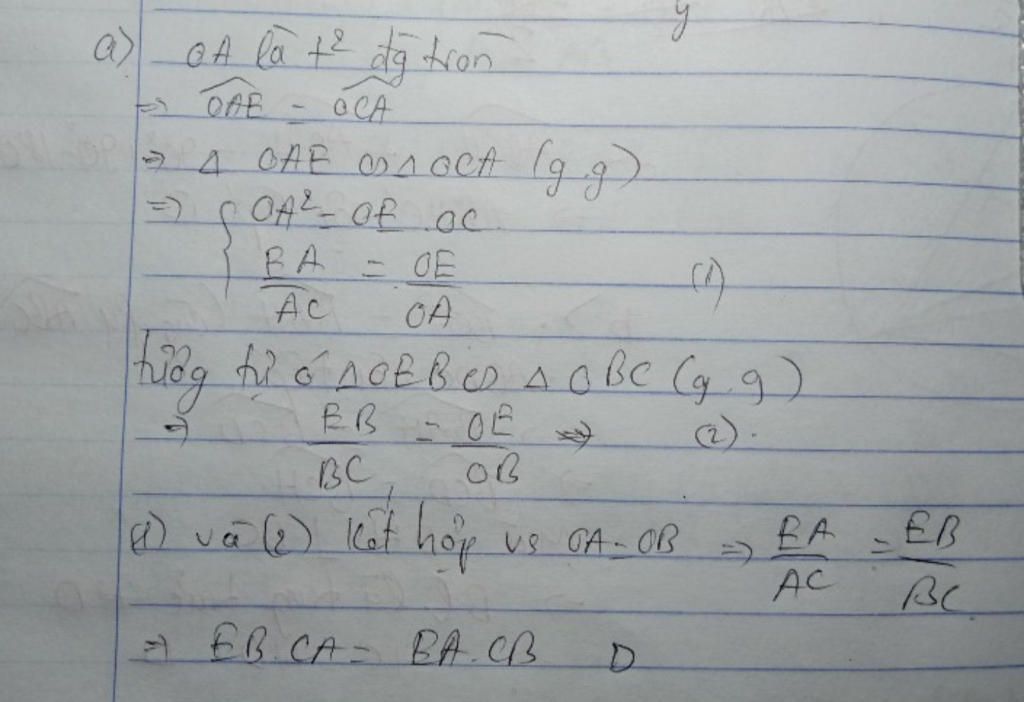 y
a) OA là t² đg tròn
=> OAE = OCA
=> Δ OAE ∽ Δ OCA (g.g)
=> { OA² = OE . OC
EA/AC = OE/OA (1)
tương tự có Δ OEB ∽ Δ OBC (g.g)
=> EB/BC = OE/OB (2).
(1) và (2) kết hợp vs OA = OB => EA/AC = EB/BC
=> EB.CA = EA.CB D